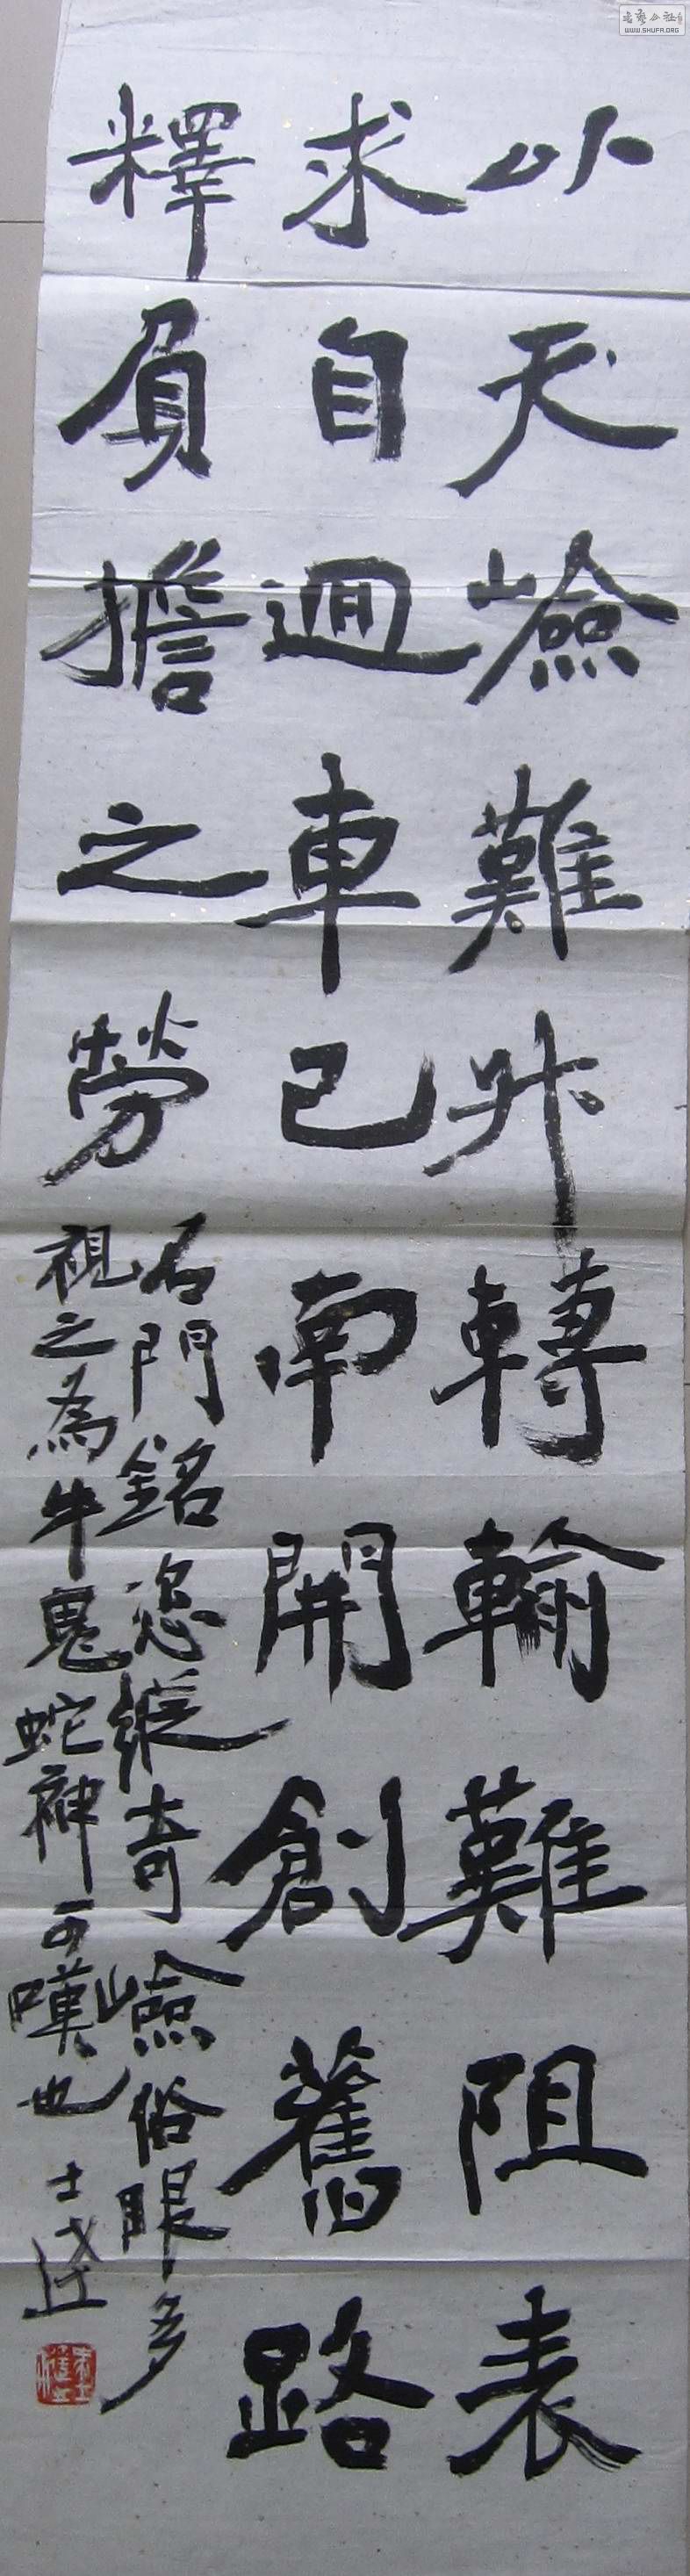 以天嶮難升轉輸難阻表
求自迴車已南開創舊路
釋負擔之勞
石門銘恣縱奇嶮俗眼多
視之為牛鬼蛇神可嘆也
士達
WWW.SHUFA.ORG